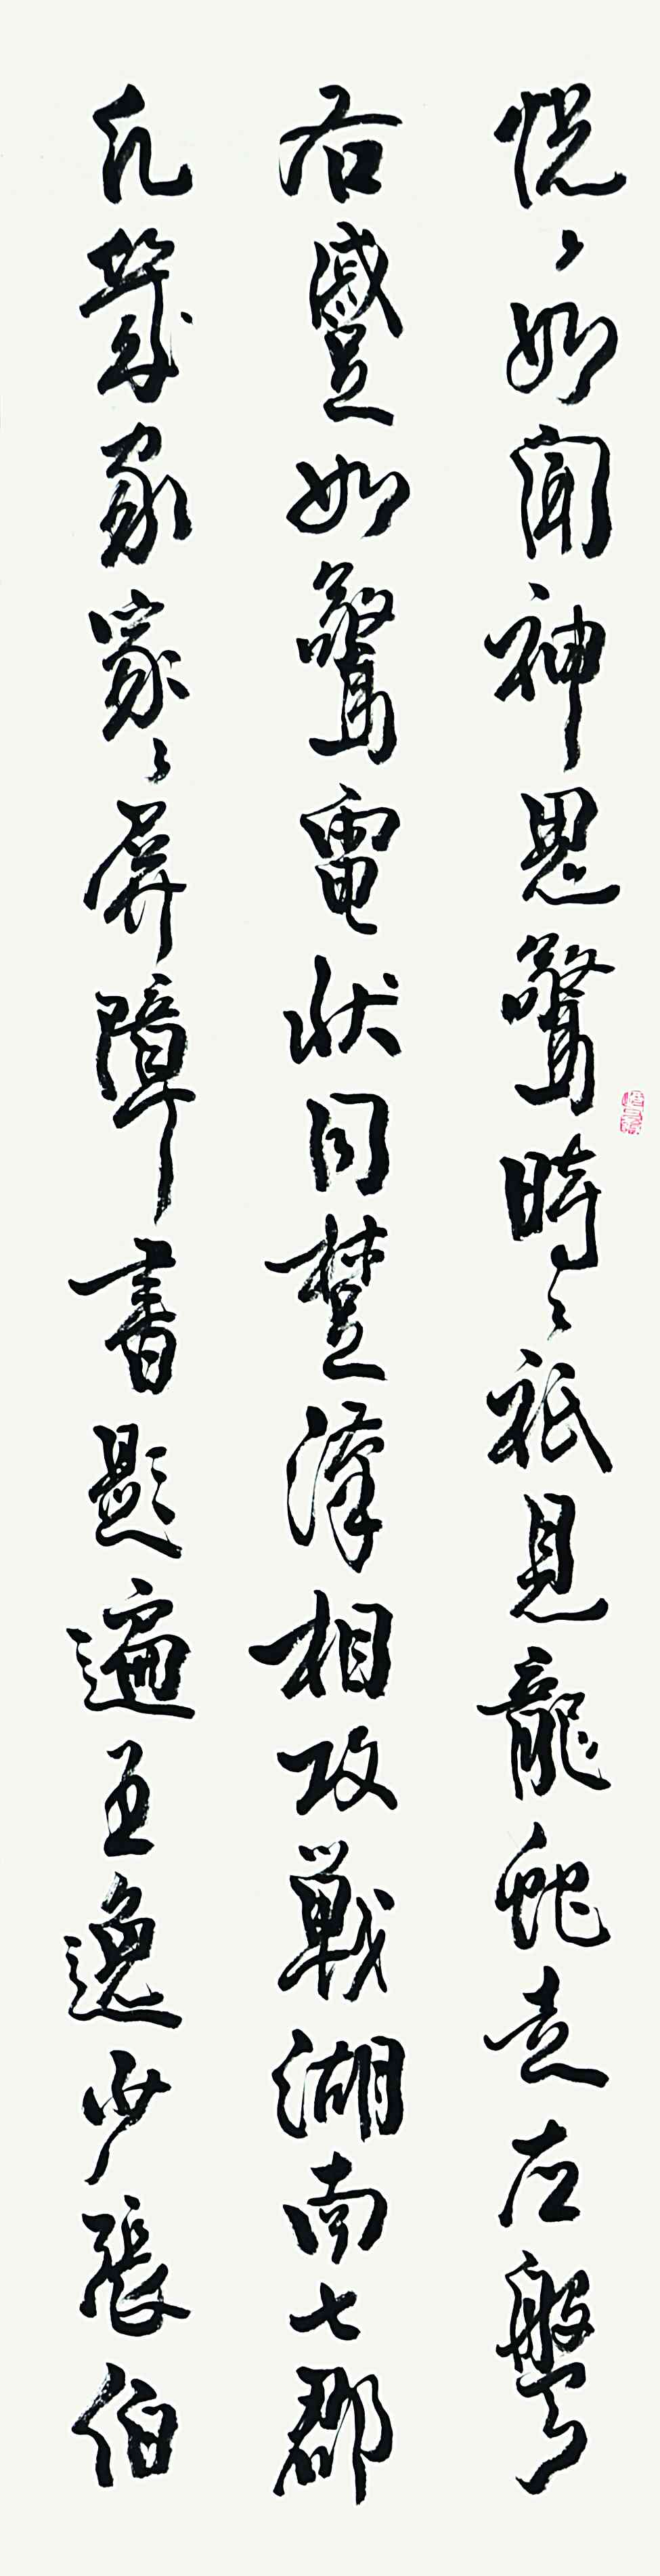 怳〻如聞神思驚時〻祇見龍蛇走左盤
右蹙如驚電狀同楚漢相攻戰湖南七郡
凡幾家家〻屏障書題遍王逸少張伯